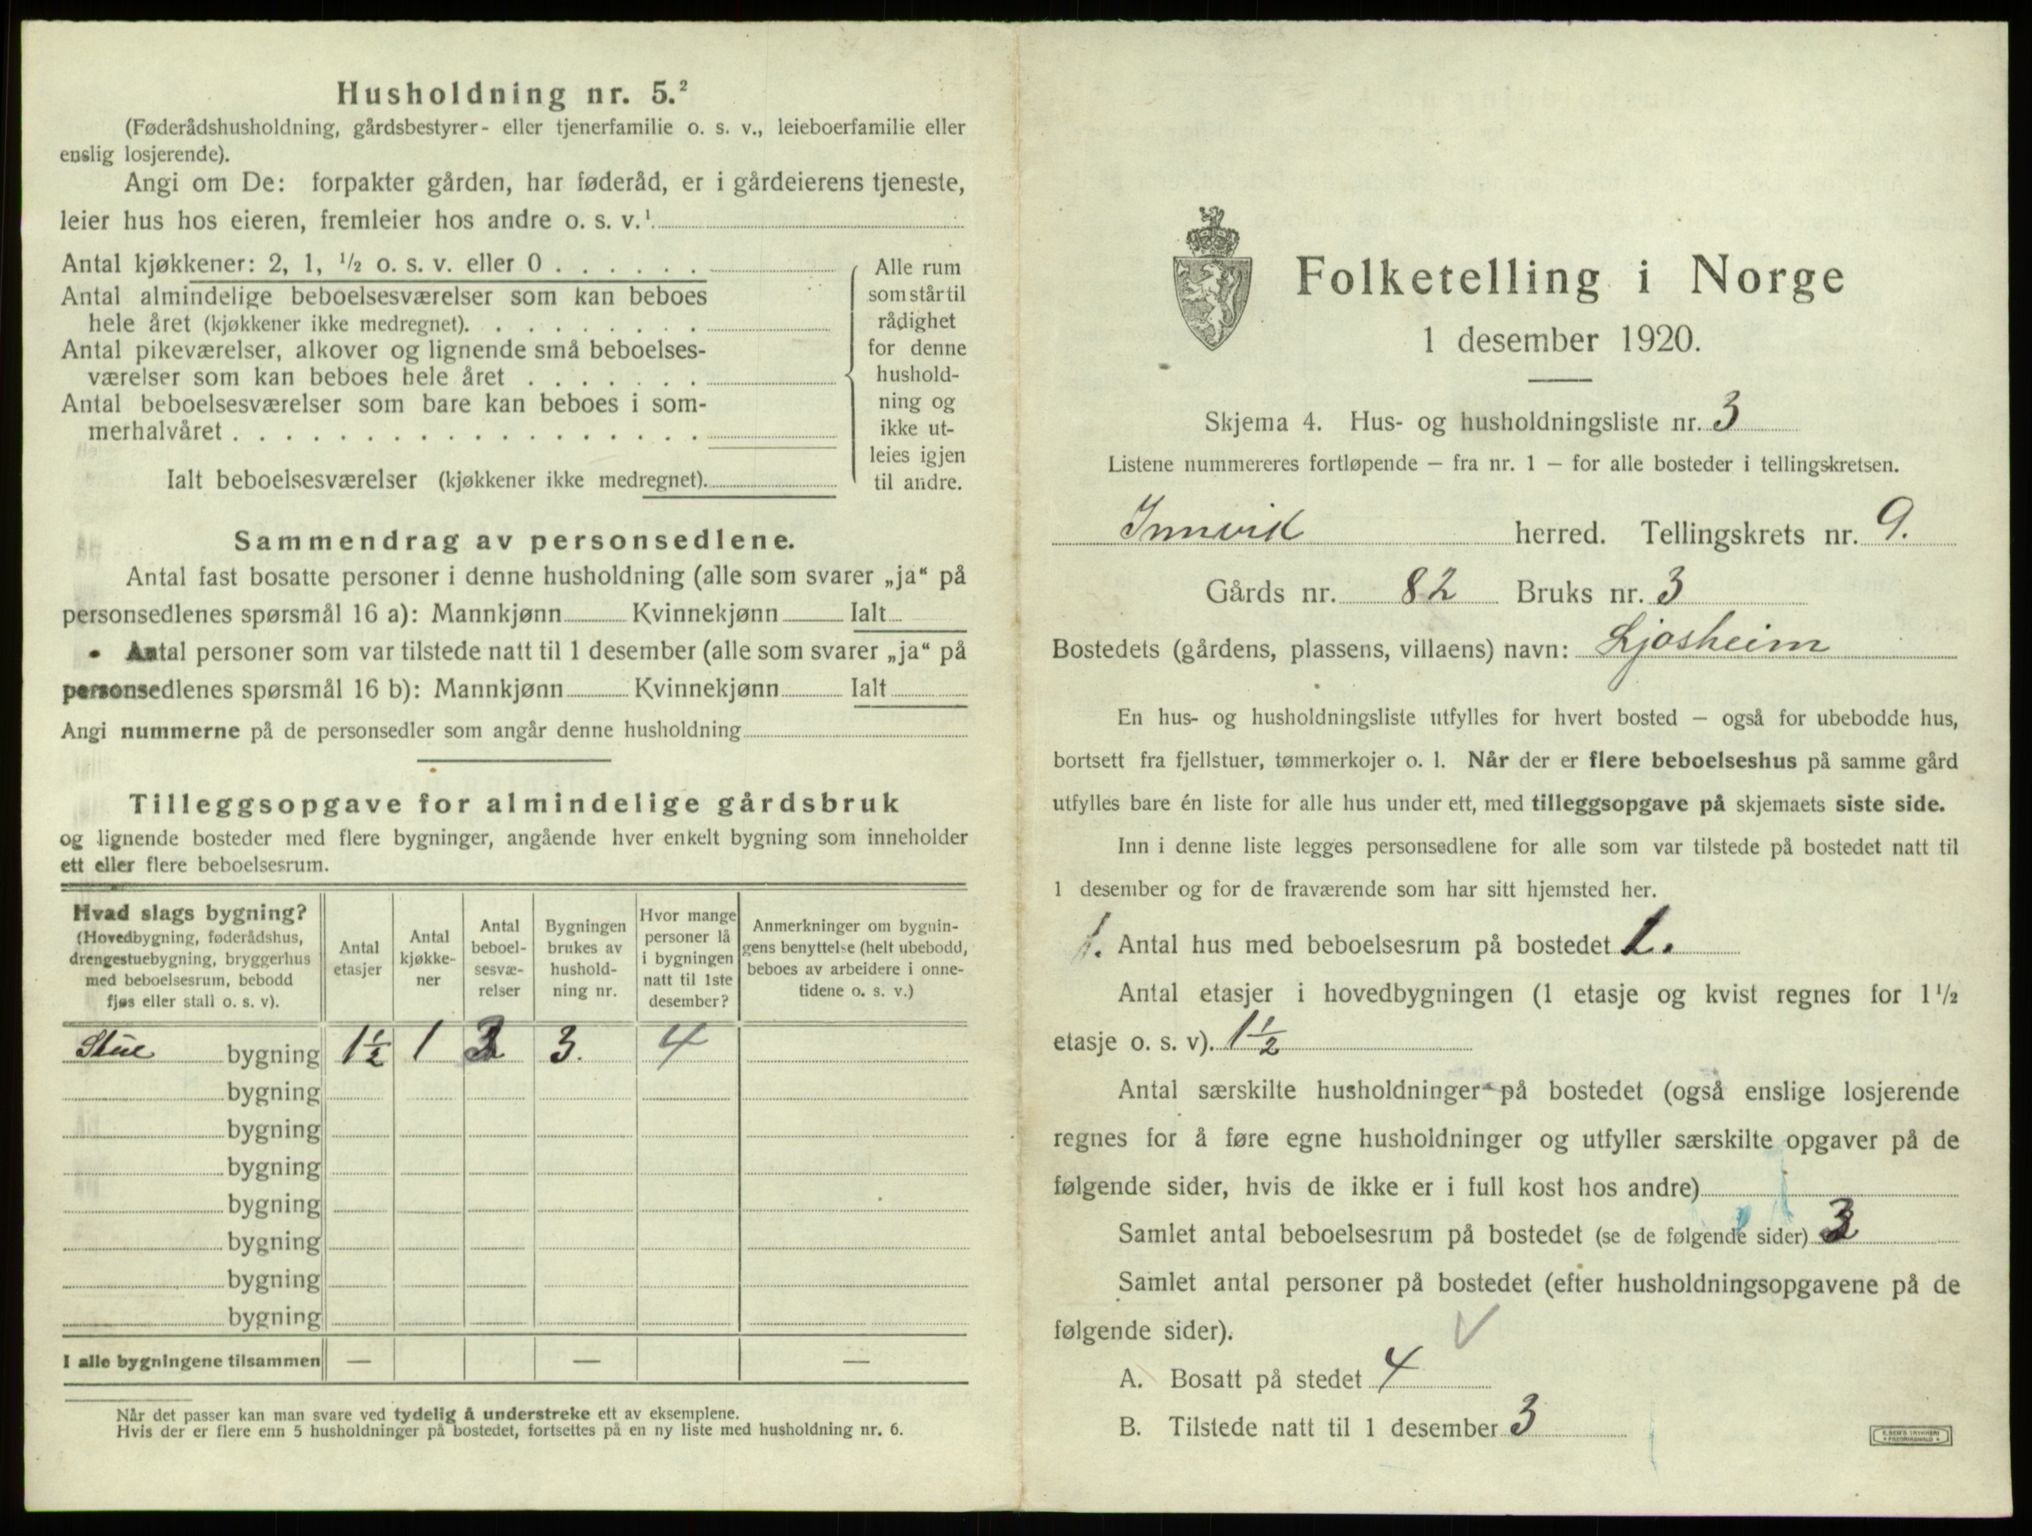 Husholdning nr. 5.²
(Føderådshusholdning, gårdsbestyrer- eller tjenerfamilie o. s. v., leieboerfamilie eller
enslig losjerende).
Angi om De: forpakter gården, har føderåd, er i gårdeierens tjeneste,
leier hus hos eieren, fremleier hos andre o. s. v.¹
Antal kjøkkener: 2, 1, ½ o. s. v. eller 0 . . . . . .
Antal almindelige beboelsesværelser som kan beboes
hele året (kjøkkener ikke medregnet). . . . . . . . .
Antal pikeværelser, alkover og lignende små beboelses-
værelser som kan beboes hele året . . . . . . .
Antal beboelsesværelser som bare kan beboes i som-
merhalvåret . . . . . . . . . . . . . . . . . .
Ialt beboelsesværelser (kjøkkener ikke medregnet).
Alle rum
som står til
rådighet
for denne
hushold-
ning og
ikke ut-
leies igjen
til andre.
Sammendrag av personsedlene.
Antal fast bosatte personer i denne husholdning (alle som svarer „ja“ på
personsedlenes spørsmål 16 a): Mannkjønn Kvinnekjønn Ialt
Antal personer som var tilstede natt til 1 desember (alle som svarer „ja“ på
personsedlenes spørsmål 16 b): Mannkjønn Kvinnekjønn Ialt
Angi nummerne på de personsedler som angår denne husholdning
Tilleggsopgave for almindelige gårdsbruk
og lignende bosteder med flere bygninger, angående hver enkelt bygning som inneholder
ett eller flere beboelsesrum.
Hvad slags bygning?
(Hovedbygning, føderådshus,
drengestuebygning, bryggerhus
med beboelsesrum, bebodd
fjøs eller stall o. s. v).
Antal
etasjer
Antal
kjøkke-
ner
Antal
beboel-
sesvæ-
relser
Bygningen
brukes av
hushold-
ning nr.
Hvor mange
personer lå
i bygningen
natt til 1ste
desember?
Anmerkninger om bygnin-
gens benyttelse (helt ubebodd,
beboes av arbeidere i onne-
tidene o. s. v.)
Stue bygning 1½ 1 3 3. 4
bygning
bygning
bygning
bygning
bygning
bygning
bygning
I alle bygningene tilsammen — — —
Når det passer kan man svare ved tydelig å understreke ett av eksemplene.
Hvis der er flere enn 5 husholdninger på bostedet, fortsettes på en ny liste med husholdning nr. 6.
Folketelling i Norge
1 desember 1920.
Skjema 4. Hus- og husholdningsliste nr. 3
Listene nummereres fortløpende — fra nr. 1 — for alle bosteder i tellingskretsen.
Innvik herred. Tellingskrets nr. 9.
Gårds nr. 82 Bruks nr. 3
Bostedets (gårdens, plassens, villaens) navn: Ljosheim
En hus- og husholdningsliste utfylles for hvert bosted — også for ubebodde hus,
bortsett fra fjellstuer, tømmerkojer o. l. Når der er flere beboelseshus på samme gård
utfylles bare én liste for alle hus under ett, med tilleggsopgave på skjemaets siste side.
Inn i denne liste legges personsedlene for alle som var tilstede på bostedet natt til
1 desember og for de fraværende som har sitt hjemsted her.
1. Antal hus med beboelsesrum på bostedet 1.
Antal etasjer i hovedbygningen (1 etasje og kvist regnes for 1½
etasje o. s. v). 1½
Antal særskilte husholdninger på bostedet (også enslige losjerende
regnes for å føre egne husholdninger og utfyller særskilte opgaver på de
følgende sider, hvis de ikke er i full kost hos andre)
Samlet antal beboelsesrum på bostedet (se de følgende sider) 3
Samlet antal personer på bostedet (efter husholdningsopgavene på de
følgende sider). √
A. Bosatt på stedet 4
B. Tilstede natt til 1 desember 3